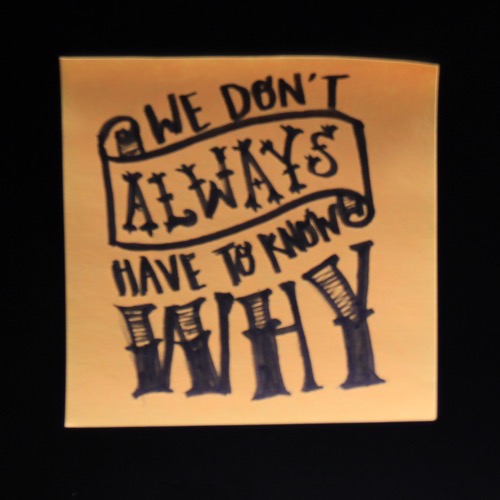 WE DON'T
ALWAYS
HAVE TO KNOW
WHY